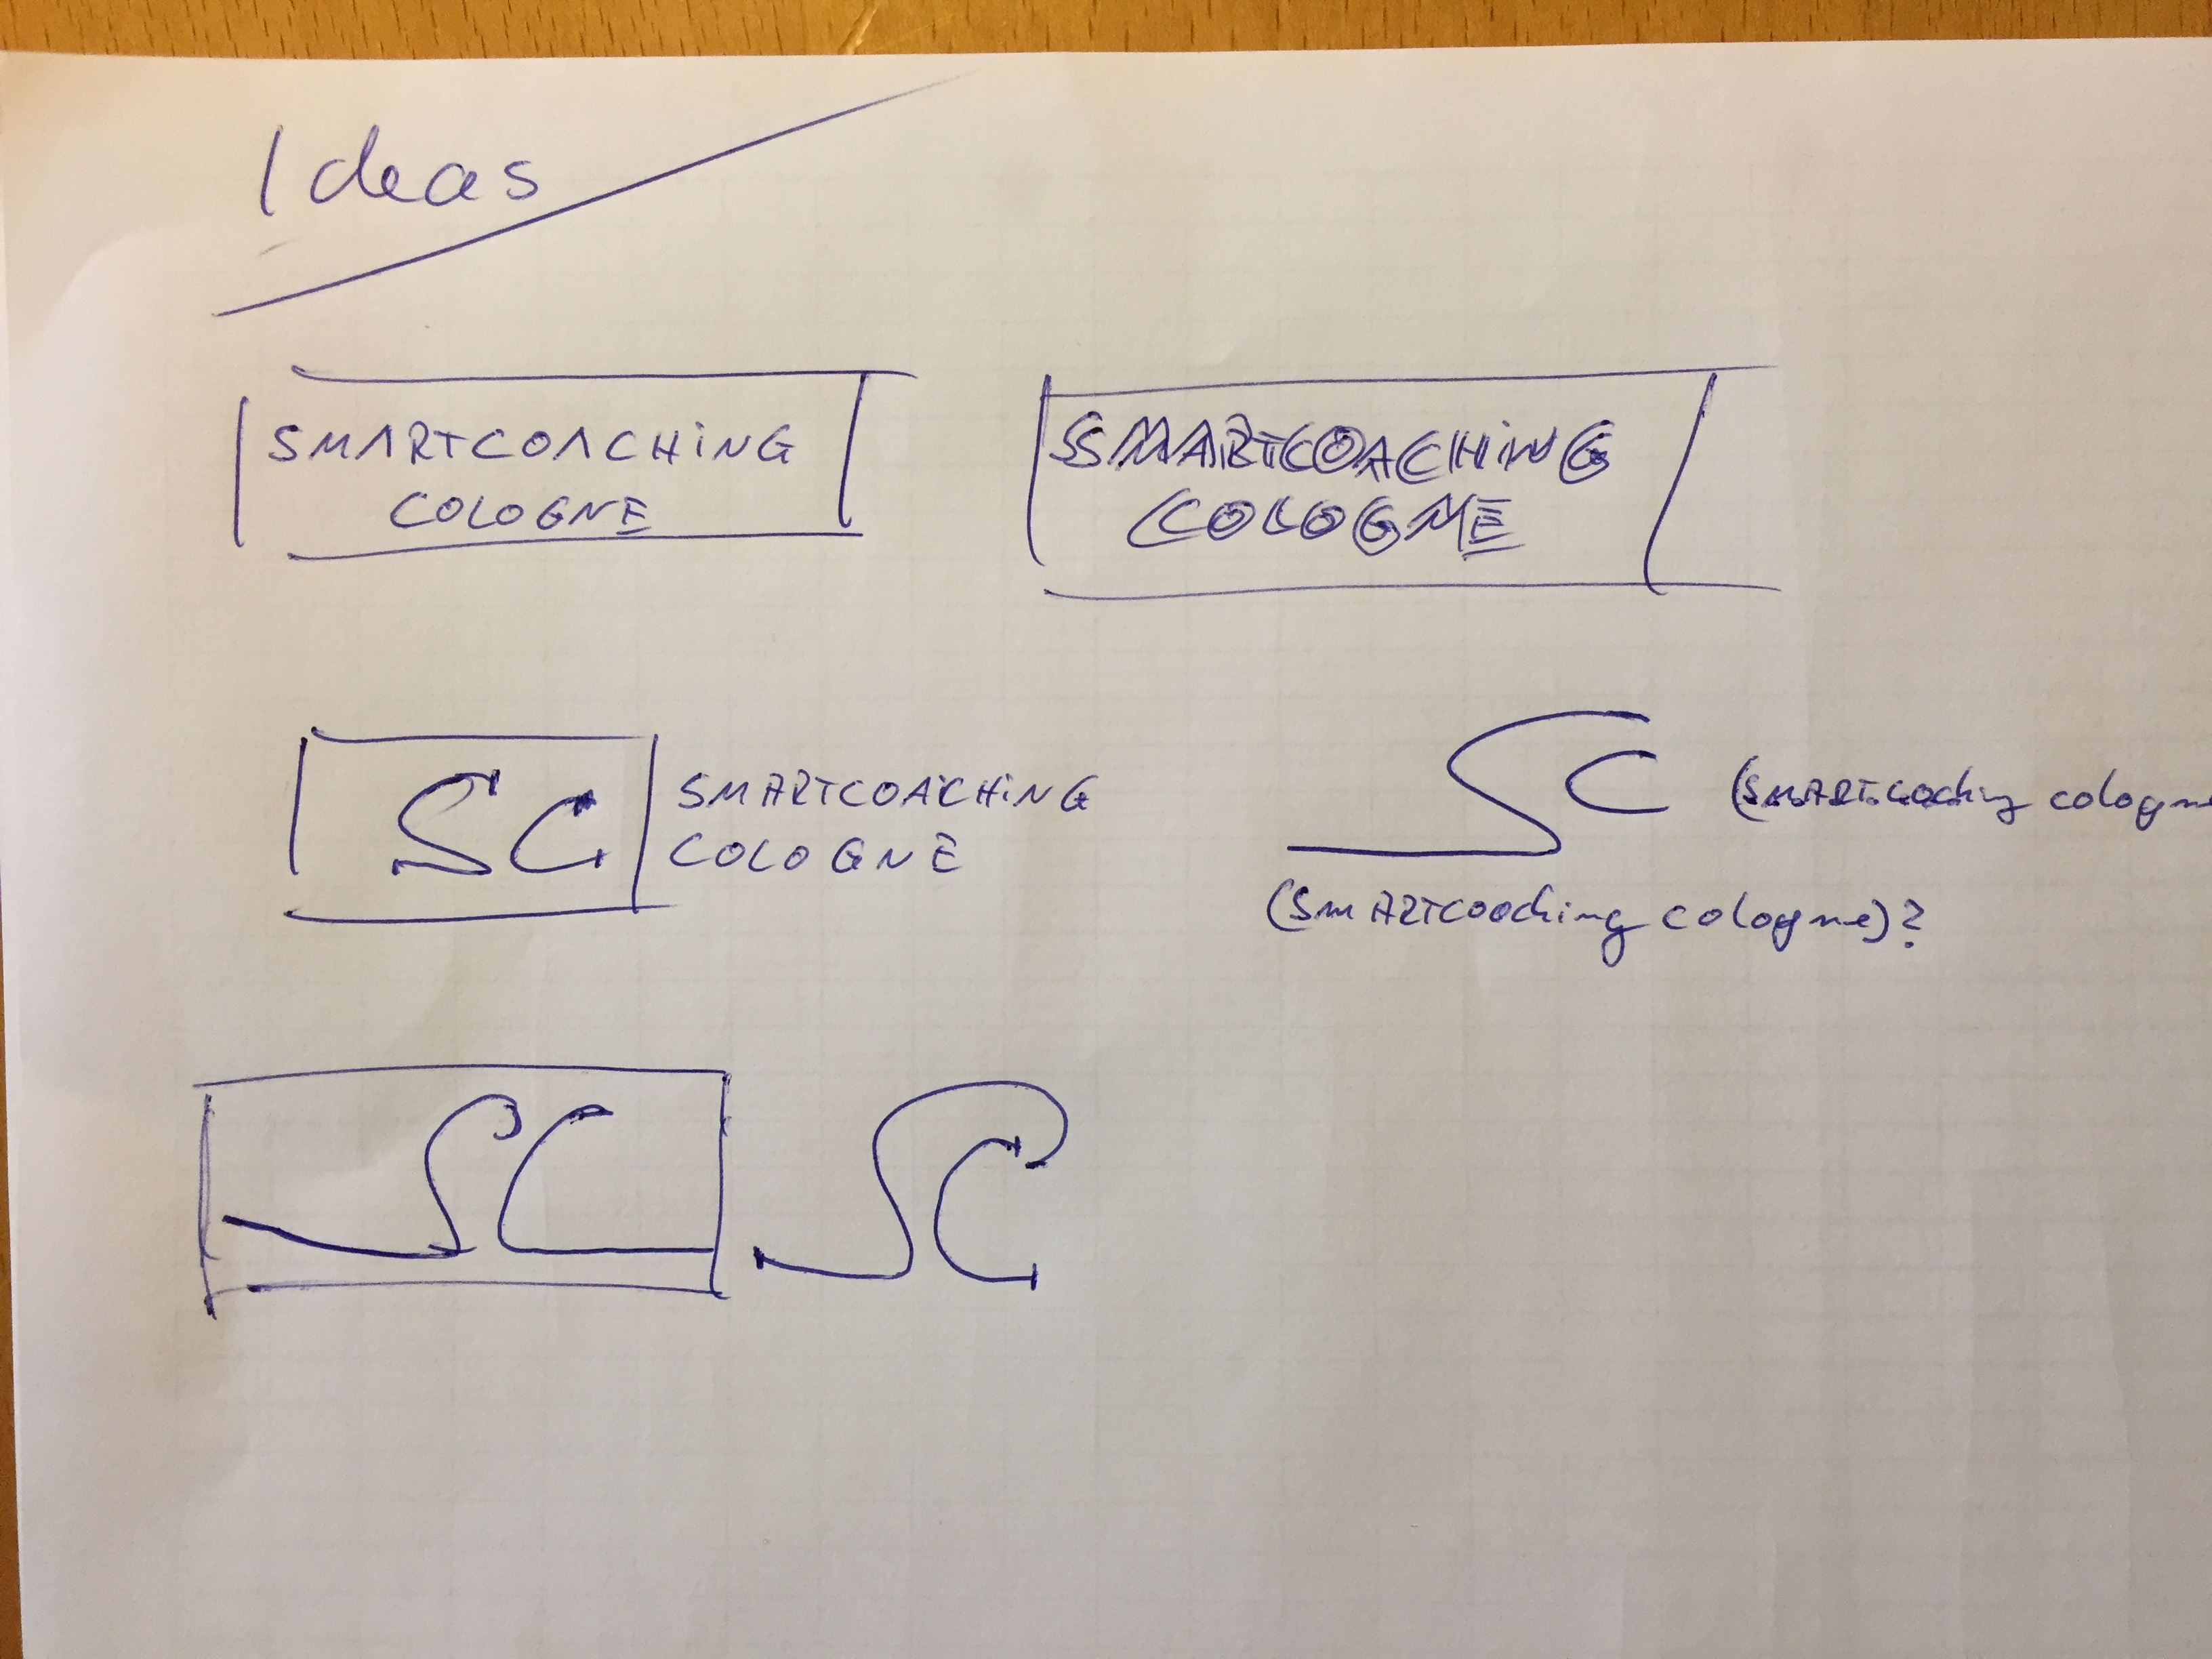 Ideas
SMARTCOACHiNG
COLOGNE
SMARTCOACHiNG
COLOGNE
SC
SMARTCOACHiNG
COLOGNE
SC
(SMARTcoaching cologne
(SMARTcoaching cologne)?
SC
SC